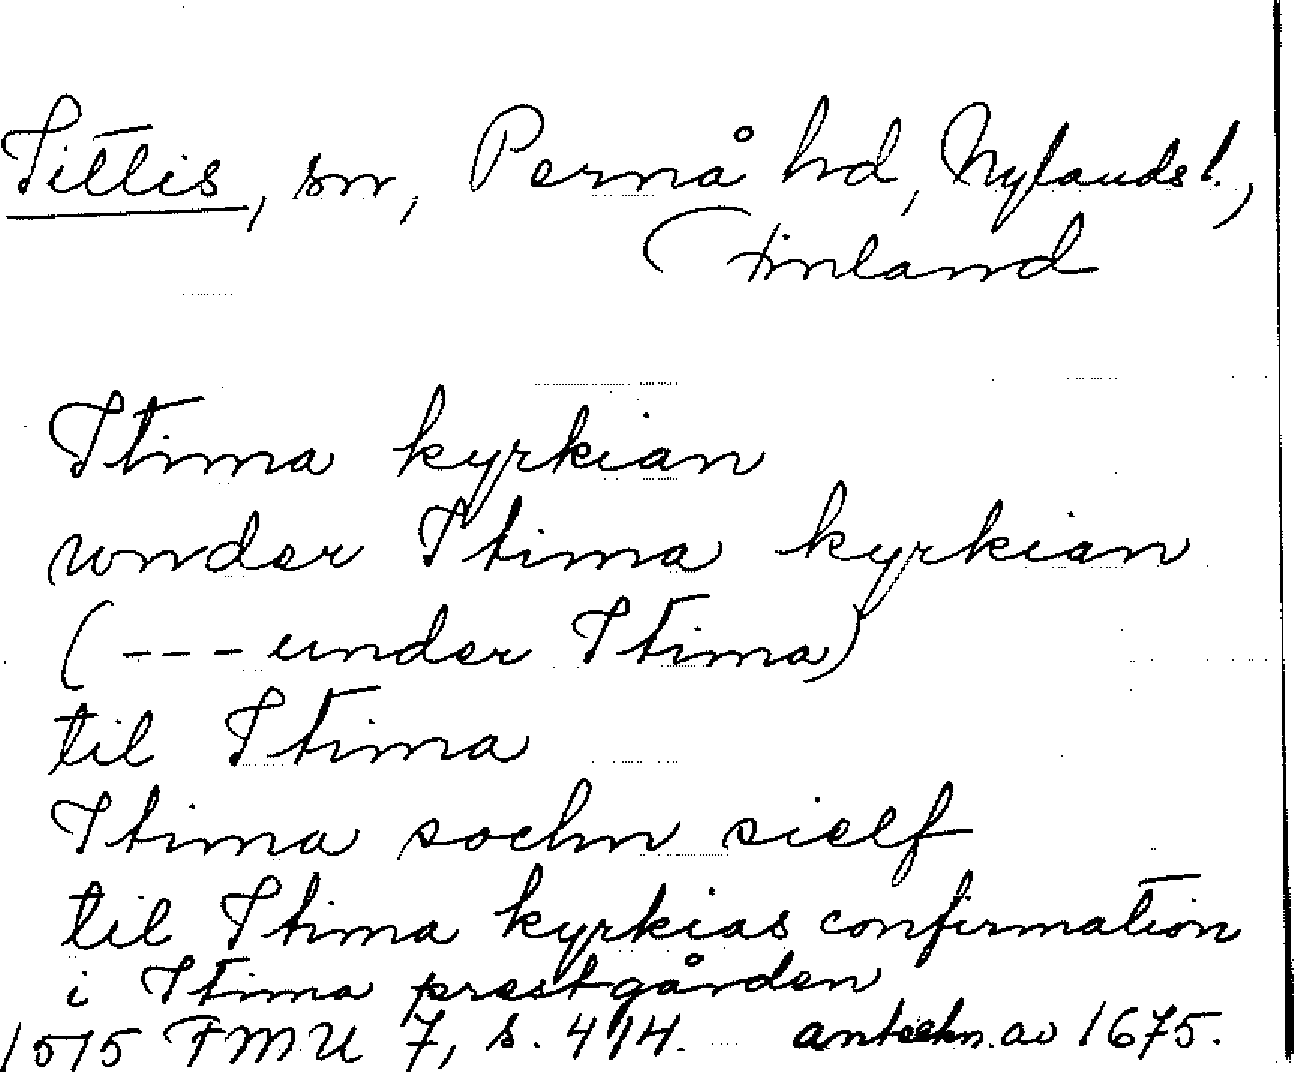 Tittis, sn, Pernå hd, Nylands l.,
Finland
Itima kyrkian
wnder Itima kyrkian
(--- under Itima)
til Itima
Itima sochn sielf
til Itima kyrkias confirmation
i Itima prestgården
1515 FMU 7, s. 414. anteckn. av 1675.